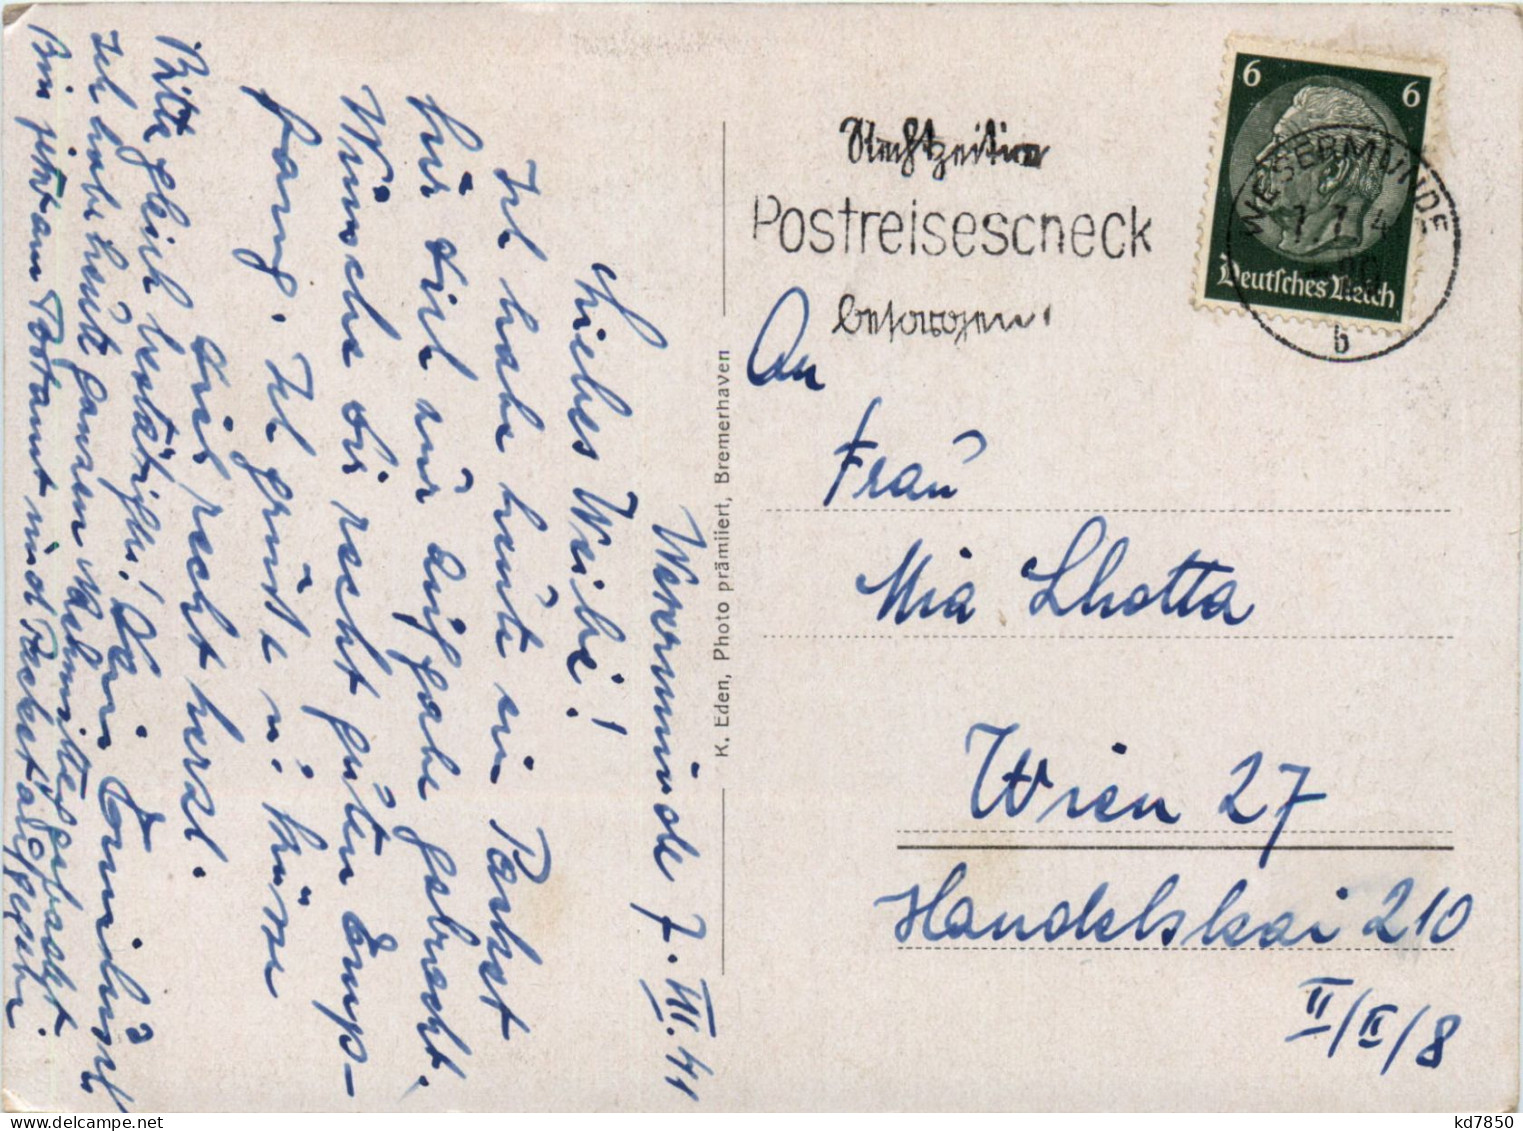 Wesermünde 7. VII. 41
Liebes Weibi!
Ich habe heute ein Packet
für dich zur Aufgabe gebracht.
Wünsche dir recht guten Emp-
fang. Ich grüße u. küsse
dich recht herzl.
Dein
Bitte gleich bestätigen!
Ich habe heute ganzen Nachmittag
Bin jetzt am Postamt und Packet aufgegeben.
K. Eden, Photo prämiiert, Bremerhaven
Rechtzeitig
Postreisescheck
besorgen
6 6
Deutsches Reich
WESERMÜNDE
7.7.4
b
An
Frau
Mia Lhotta
Wien 27
Handelskai 210
II/II/8
kd7850